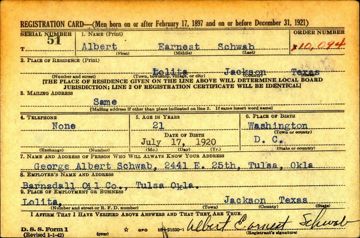 REGISTRATION CARD—(Men born on or after February 17, 1897 and on or before December 31, 1921)
SERIAL NUMBER 1. NAME (Print) ORDER NUMBER
51 Albert Earnest Schwab 10,094
(First) (Middle) (Last)
2. PLACE OF RESIDENCE (Print)
Lolita Jackson Texas
(Number and street) (Town, township, village, or city) (County) (State)
[THE PLACE OF RESIDENCE GIVEN ON THE LINE ABOVE WILL DETERMINE LOCAL BOARD
JURISDICTION; LINE 2 OF REGISTRATION CERTIFICATE WILL BE IDENTICAL]
3. MAILING ADDRESS
Same
(Mailing address if other than place indicated on line 2. If same insert word same)
4. TELEPHONE 5. AGE IN YEARS 6. PLACE OF BIRTH
None 21 Washington
DATE OF BIRTH (Town or county)
July 17, 1920 D. C.
(Exchange) (Number) (Mo.) (Day) (Yr.) (State or country)
7. NAME AND ADDRESS OF PERSON WHO WILL ALWAYS KNOW YOUR ADDRESS
George Albert Schwab, 2441 E. 25th, Tulsa, Okla
8. EMPLOYER'S NAME AND ADDRESS
Barnsdall Oil Co., Tulsa Okla.
9. PLACE OF EMPLOYMENT OR BUSINESS
Lolita, Jackson Texas
(Number and street or R. F. D. number) (Town) (County) (State)
I AFFIRM THAT I HAVE VERIFIED ABOVE ANSWERS AND THAT THEY ARE TRUE.
D. S. S. Form 1
(Revised 1-1-42) (over) Albert Earnest Schwab